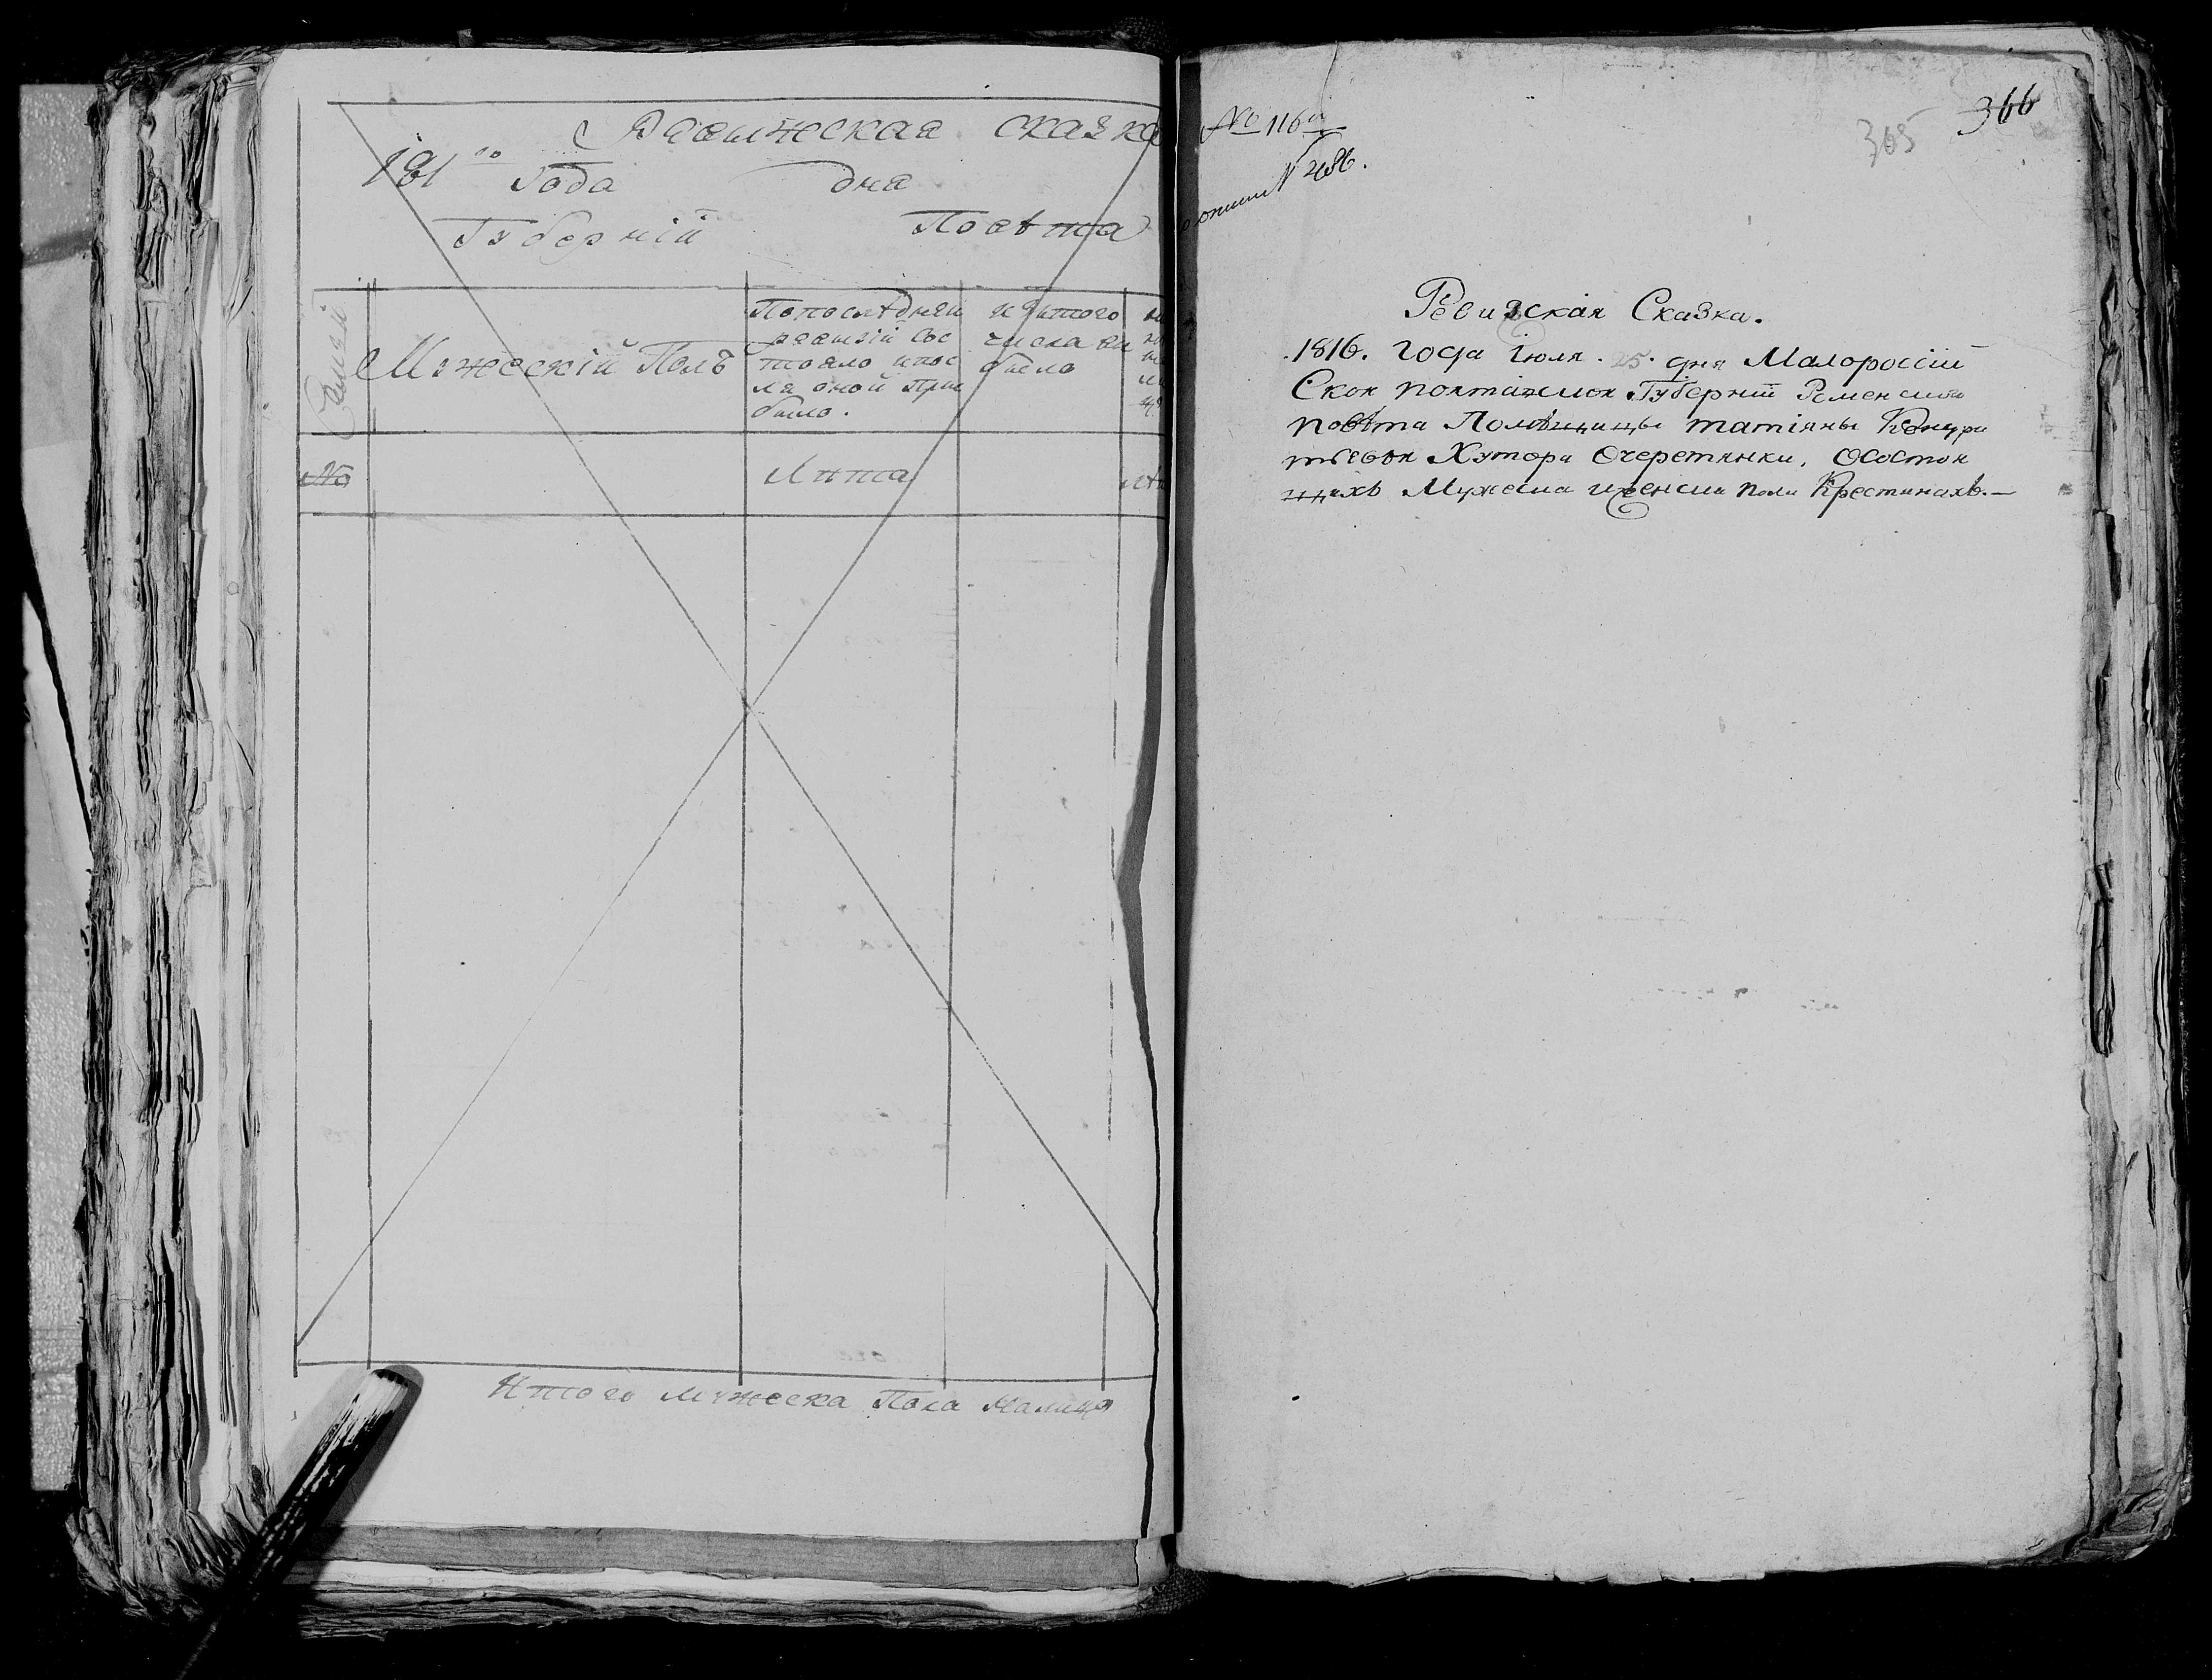 Ревижская сказка
181 го Года дня
Губернiй Повѣта
Семьи
Мужескiй Полъ
Попоследней
ревизiи сос
тояло ипос
ле оной При
было.
изтого
числа вы
было
№
Лѣта
лѣт
Итого мужеска Пола Налицо
№ 116й
N 286.
365
366
Ревизская Сказка.
.1816. года Iюля .25. дня Малоросiй
Ской полтавской Губернiи Роменского
повѣта Помѣщицы татiяны
Хутора Очеретянки, Осостоя
щихъ Мужеска иженска пола Крестянахъ.—